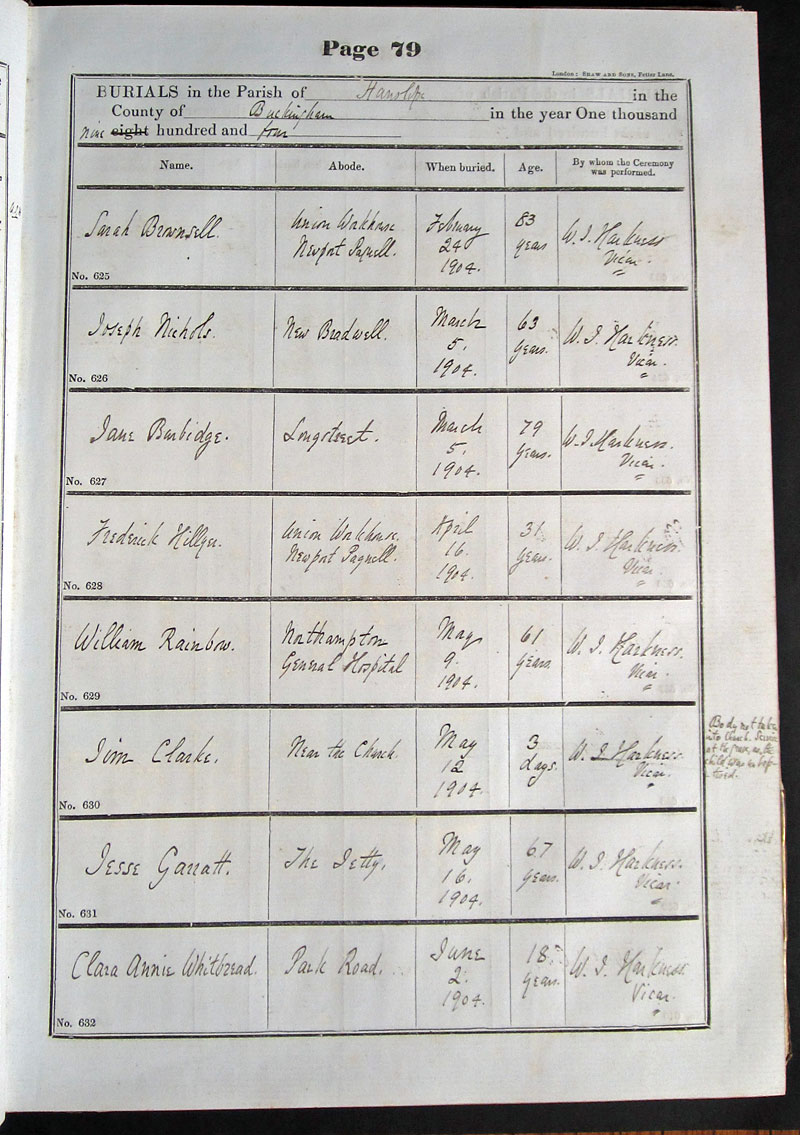 Page 79
London: SHAW AND SONS, Fetter Lane.
BURIALS in the Parish of Hanslope in the
County of Buckingham in the year One thousand
nine eight hundred and four
Name. Abode. When buried. Age. By whom the Ceremony was performed.
Sarah Brownsell.
No. 625
Union Workhouse
Newport Pagnell.
February
24
1904.
83
years
W. J. Harkness
Vicar.
Joseph Nichols.
No. 626
New Bradwell.
March
5.
1904.
63
years.
W. J. Harkness.
Vicar.
Jane Burbidge.
No. 627
Longstreet.
March
5.
1904.
79
years.
W. J. Harkness.
Vicar.
Frederick Hillyer.
No. 628
Union Workhouse.
Newport Pagnell.
April
16.
1904.
31
years.
W. J. Harkness.
Vicar.
William Rainbow.
No. 629
Northampton
General Hospital
May
9.
1904.
61
years.
W. J. Harkness.
Vicar.
Jim Clarke.
No. 630
Near the Church.
May
12
1904.
3
days.
W. J. Harkness.
Vicar.
Body not taken
into Church. Service
at the grave, as the
child was unbap-
tized.
Jesse Garratt.
No. 631
The Jetty.
May
16.
1904.
67
years.
W. J. Harkness.
Vicar.
Clara Annie Whitbread.
No. 632
Park Road.
June
2.
1904.
18.
years.
W. J. Harkness.
Vicar.